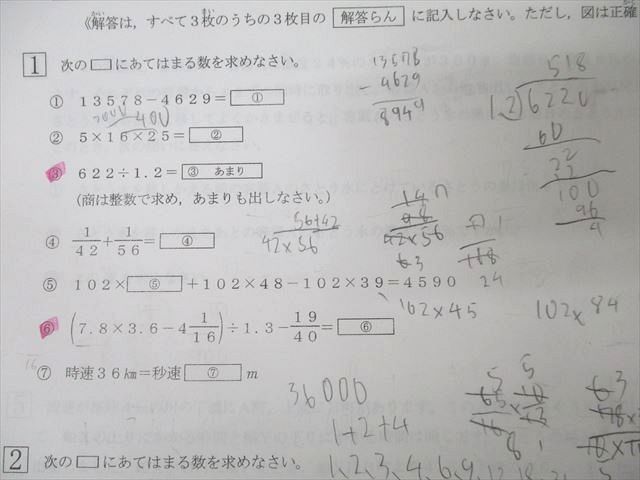 《解答は，すべて3枚のうちの3枚目の 解答らん に記入しなさい。ただし，図は正確
1 次の□にあてはまる数を求めなさい。
① 13578－4629＝ ①
② 5×16×25＝ ②
③ 622÷1.2＝ ③ あまり
(商は整数で求め，あまりも出しなさい。)
④ 1/42＋1/56＝ ④
⑤ 102× ⑤ ＋102×48－102×39＝4590
⑥ (7.8×3.6－4 1/16)÷1.3－19/40＝ ⑥
⑦ 時速36km＝秒速 ⑦ m
2 次の□にあてはまる数を求めなさい。
13578
－4629
8949
400
518
1.2)6220
60
22
12
100
96
4
56+42
42×56
102×45
102×84
24
36000
1+2+4
1、2、3、4、6、9、12、18